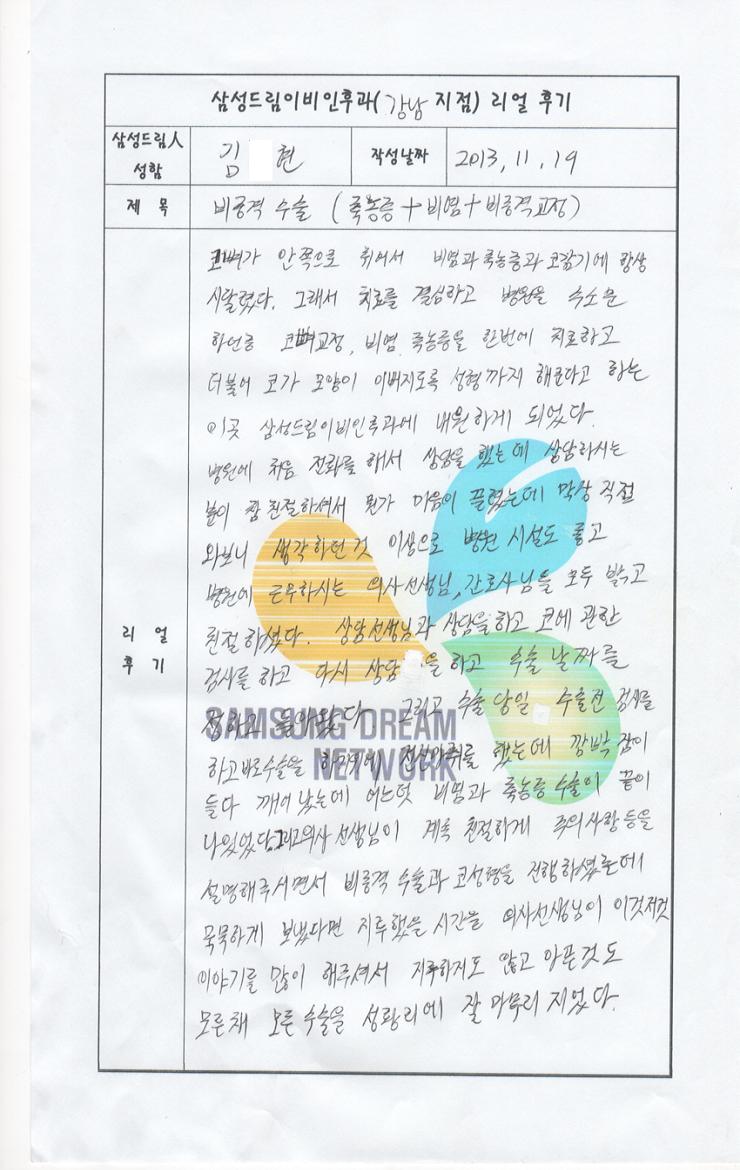 삼성드림이비인후과(강남 지점) 리얼 후기
삼성드림人 성함
김 현
작성날짜
2013, 11, 19
제 목
비중격 수술 (축농증+비염+비중격교정)
리 얼 후 기
코뼈가 안쪽으로 휘어서 비염과 축농증과 코감기에 항상
시달렸다. 그래서 치료를 결심하고 병원을 수소문
하던중 코뼈교정, 비염, 축농증을 한번에 치료하고
더불어 코가 모양이 이뻐지도록 성형까지 해준다고 하는
이곳 삼성드림이비인후과에 내원하게 되었다.
병원에 처음 전화를 해서 상담을 했는데 상담하시는
분이 참 친절하셔서 뭔가 마음이 끌렸는데 막상 직접
와보니 생각하던것 이상으로 병원 시설도 좋고
병원에 근무하시는 의사선생님, 간호사님들 모두 밝고
친절하셨다. 상담선생님과 상담을하고 코에 관한
검사를 하고 다시 상담을 하고 수술 날짜를
정하고 돌아왔다 그리고 수술 당일 수술전 검사를
하고바로수술을 하기위해 전신마취를 했는데 깜빡 잠이
들다 깨어 났는데 어느덧 비염과 축농증 수술이 끝이
나있었다.그리고의사 선생님이 계속 친절하게 주의사항 등을
설명해주시면서 비중격 수술과 코성형을 진행하셨는데
묵묵하게 보냈다면 지루했을 시간을 의사선생님이 이것저것
이야기를 많이 해주셔서 지루하지도 않고 아픈것도
모른채 모든 수술을 성황리에 잘 마무리 지었다.
SAMSUNG DREAM
NETWORK